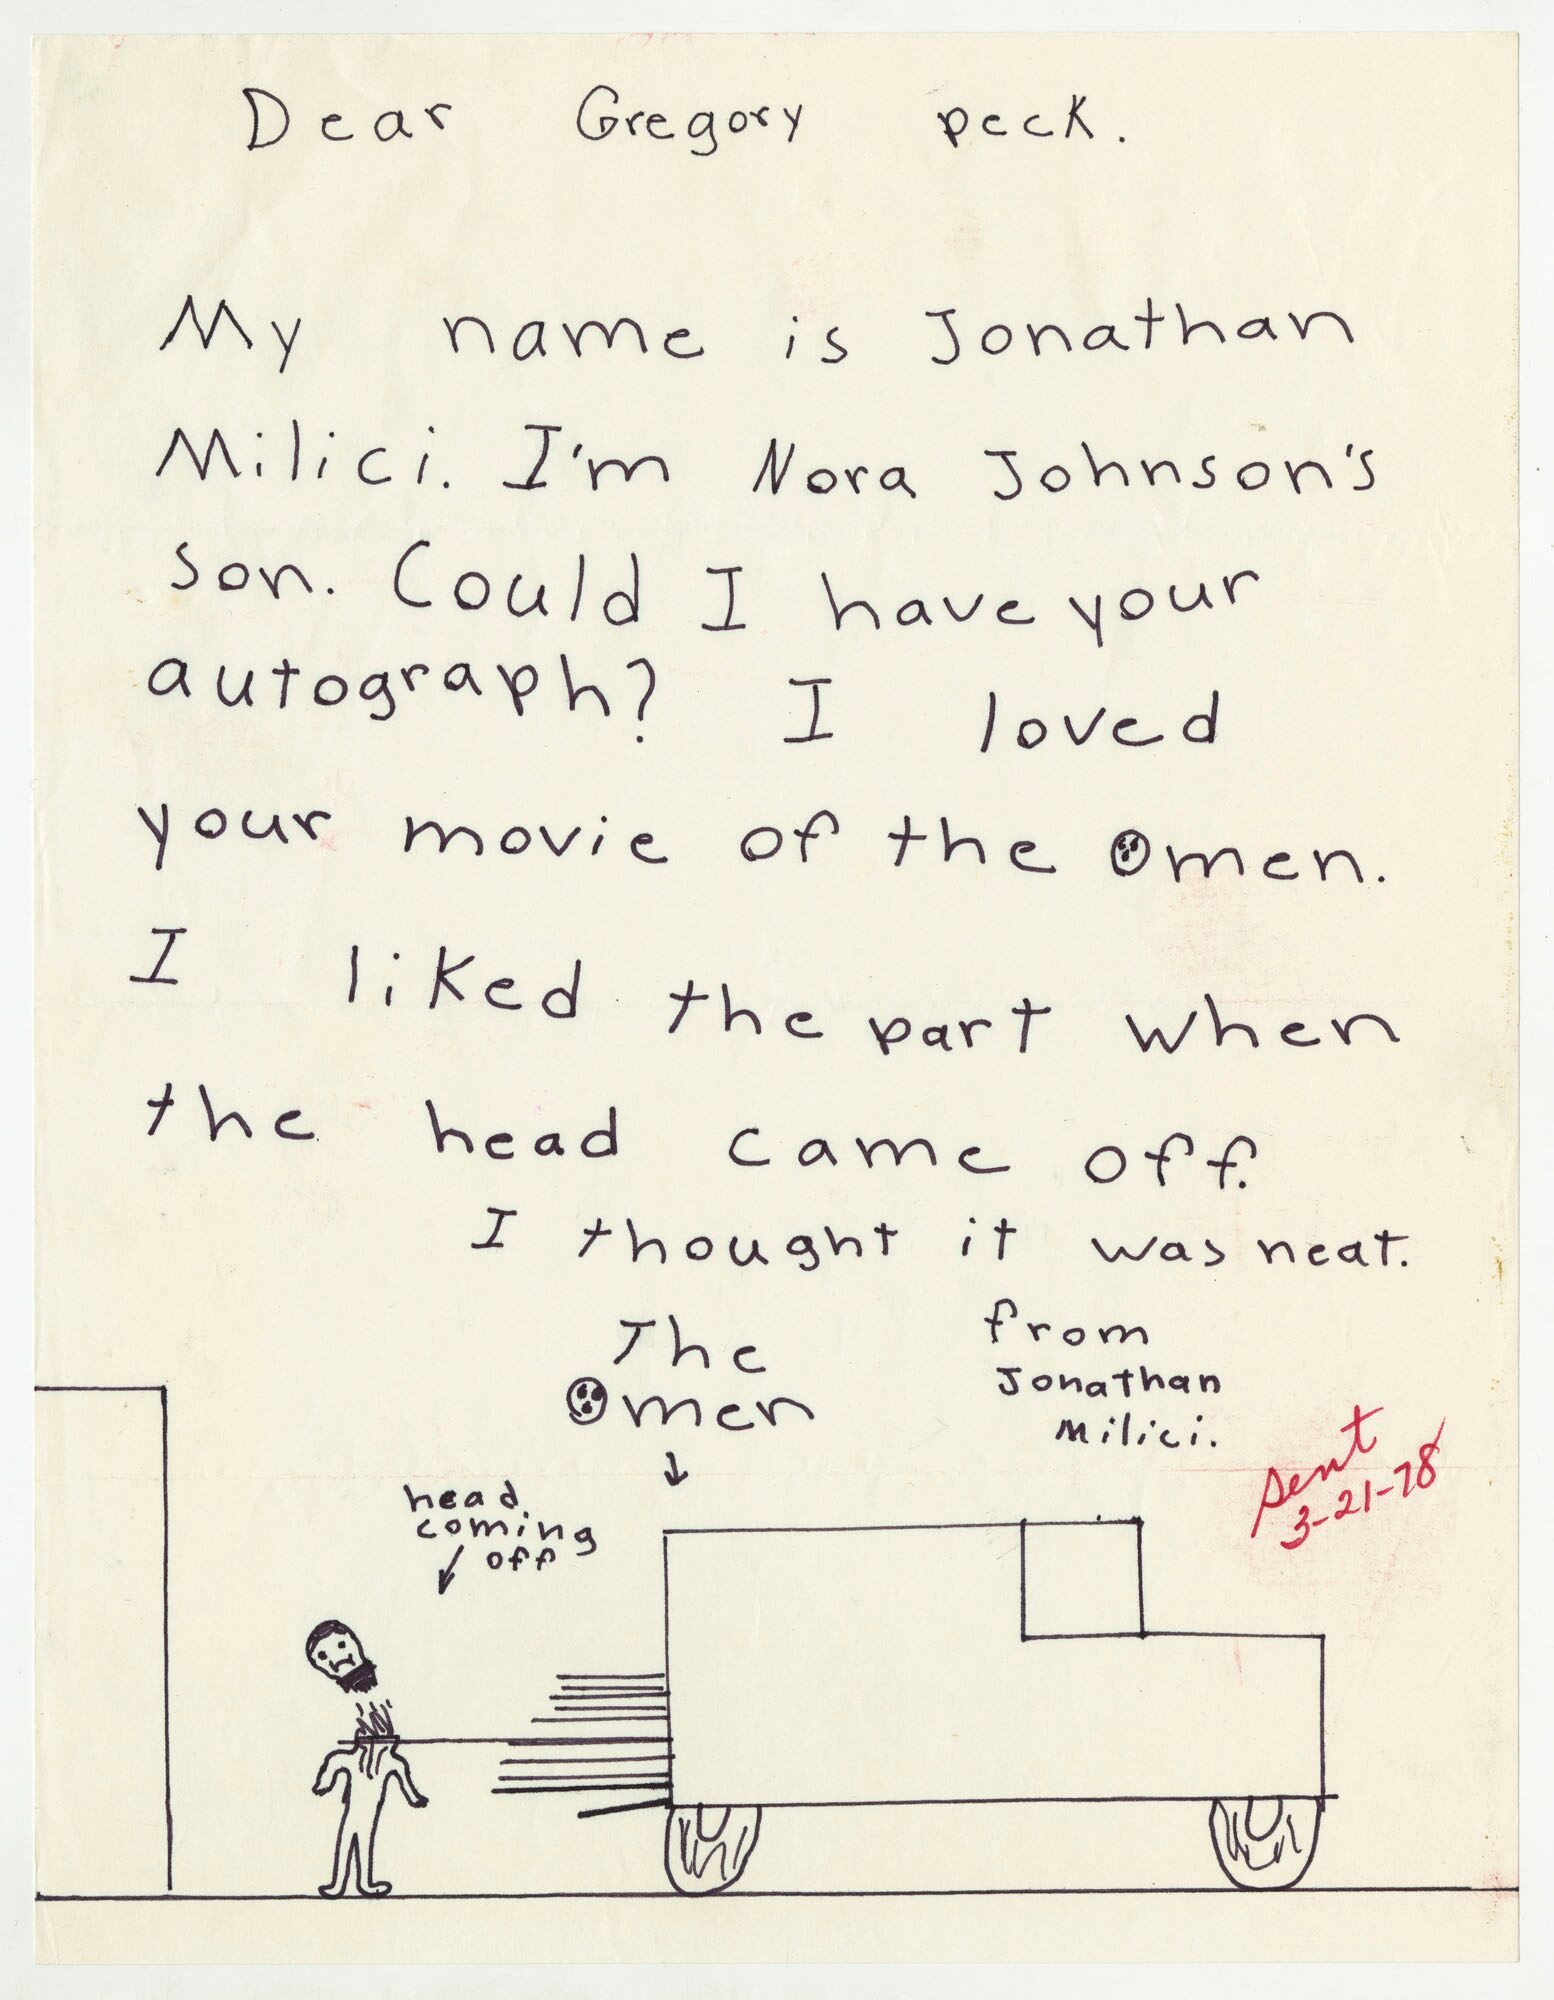 Dear Gregory peck.
My name is Jonathan
Milici. I'm Nora Johnson's
son. Could I have your
autograph? I loved
your movie of the Omen.
I liked the part when
the head came off.
I thought it was neat.
from
Jonathan
Milici.
The
Omen
head
coming
off
sent
3-21-78